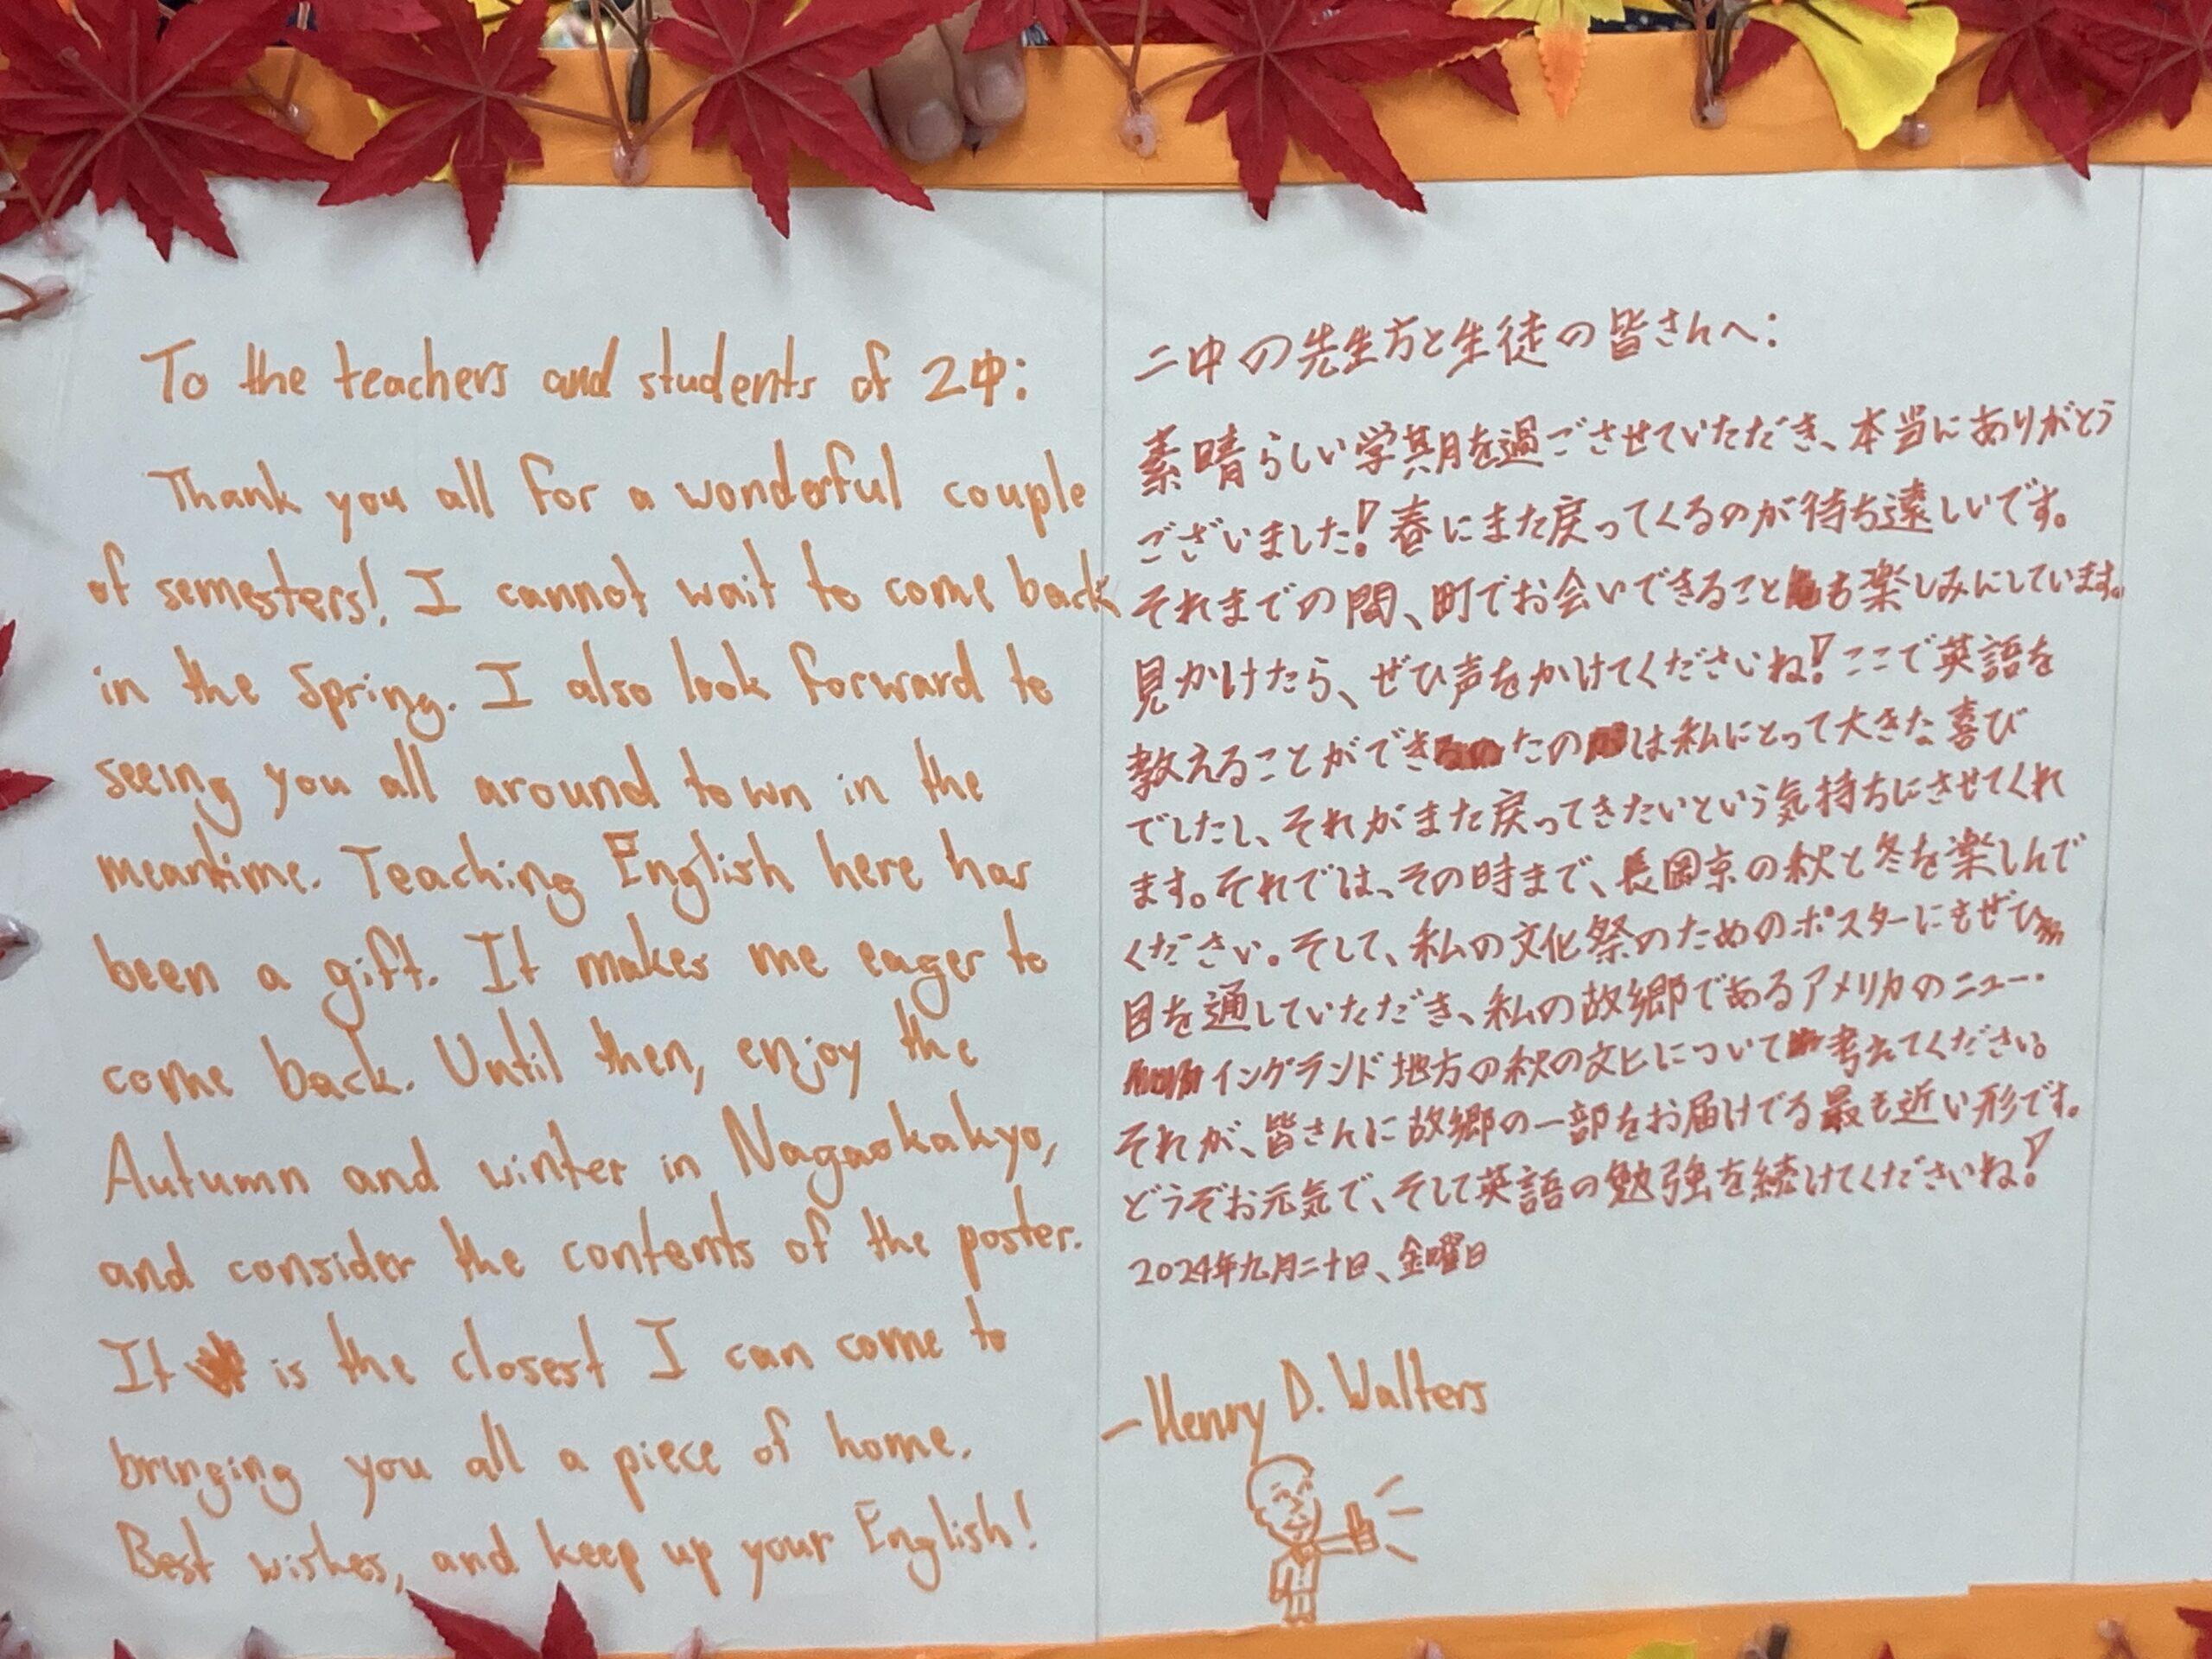 To the teachers and students of 2中:
Thank you all for a wonderful couple
of semesters! I cannot wait to come back
in the Spring. I also look forward to
seeing you all around town in the
meantime. Teaching English here has
been a gift. It makes me eager to
come back. Until then, enjoy the
Autumn and winter in Nagaokakyo,
and consider the contents of the poster.
It is the closest I can come to
bringing you all a piece of home.
Best wishes, and keep up your English!
二中の先生方と生徒の皆さんへ:
素晴らしい学期を過ごさせていただき、本当にありがとう
ございました!春にまた戻ってくるのが待ち遠しいです。
それまでの間、町でお会いできることも楽しみにしています。
見かけたら、ぜひ声をかけてくださいね!ここで英語を
教えることができたのは私にとって大きな喜び
でしたし、それがまた戻ってきたいという気持ちにさせてくれ
ます。それでは、その時まで、長岡京の秋と冬を楽しんで
ください。そして、私の文化祭のためのポスターにもぜひ
目を通していただき、私の故郷であるアメリカのニュー・
イングランド地方の秋の文ヒについて考えてください。
それが、皆さんに故郷の一部をお届けでる最も近い形です。
どうぞお元気で、そして英語の勉強を続けてくださいね!
2024年九月二十日、金曜日
—Henry D. Walters